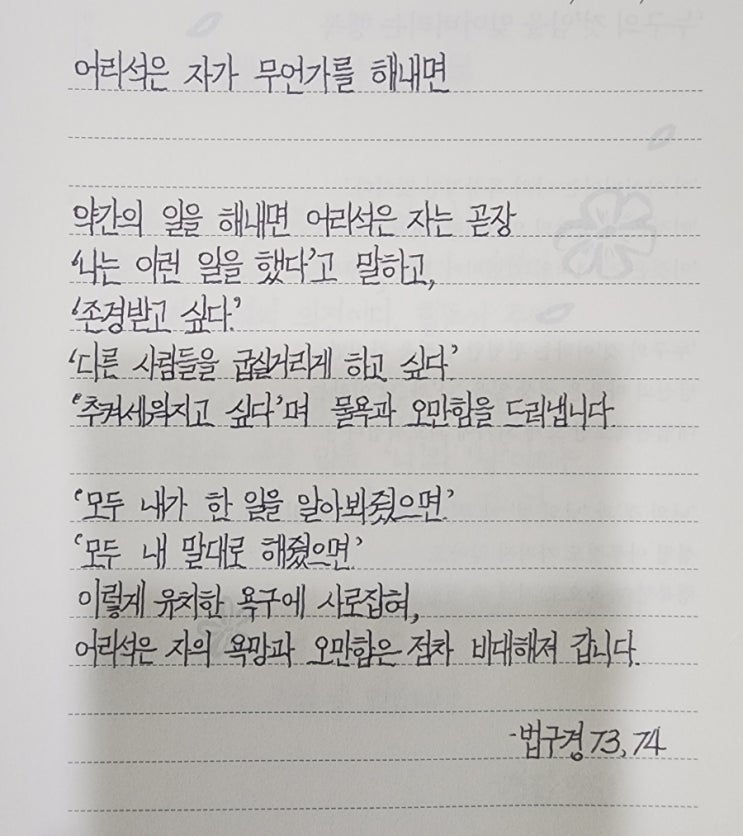 어리석은 자가 무언가를 해내면
약간의 일을 해내면 어리석은 자는 곧장
'나는 이런 일을 했다'고 말하고,
'존경받고 싶다.'
'다른 사람들을 굽실거리게 하고 싶다.'
'추켜세워지고 싶다'며 물욕과 오만함을 드러냅니다.
'모두 내가 한 일을 알아봐줬으면.'
'모두 내 말대로 해줬으면.'
이렇게 유치한 욕구에 사로잡혀,
어리석은 자의 욕망과 오만함은 점차 비대해져 갑니다.
-법구경 73, 74